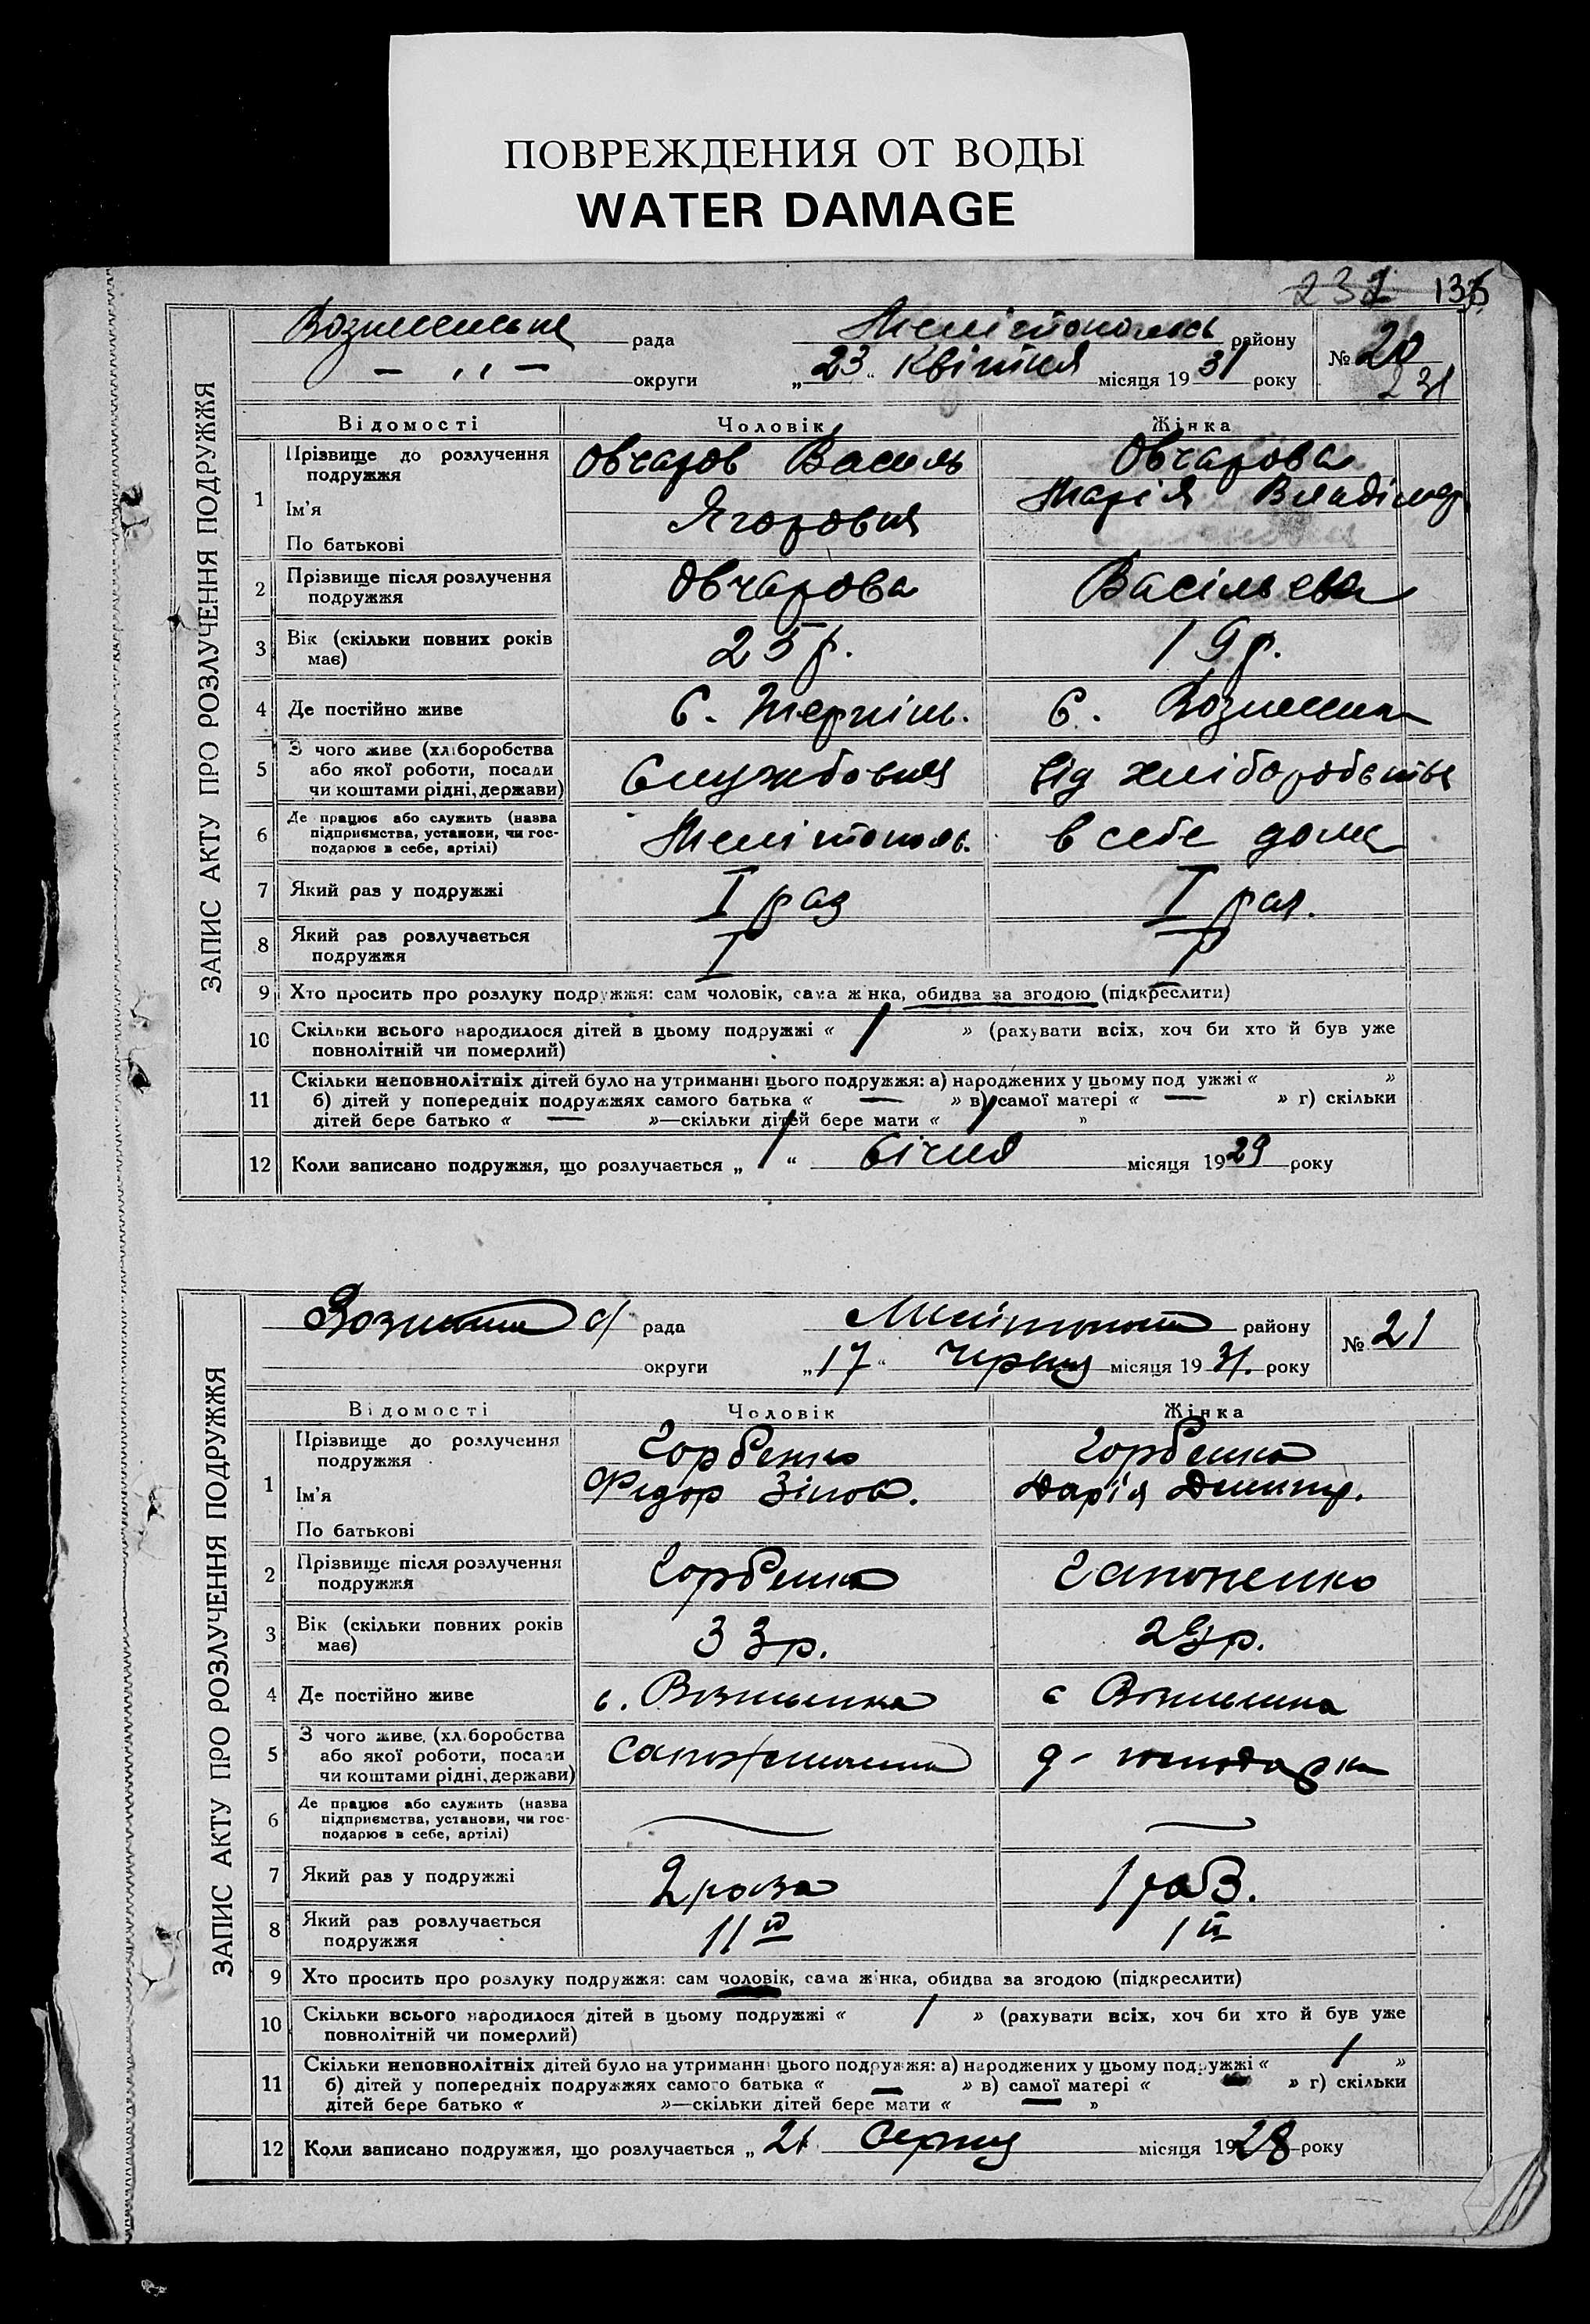 ПОВРЕЖДЕНИЯ ОТ ВОДЫ
WATER DAMAGE
ЗАПИС АКТУ ПРО РОЗЛУЧЕННЯ ПОДРУЖЖЯ
рада района
района
округи „23“ Квітня місяця 1931 року № 20
231
Відомості Чоловік Жінка
1 Прізвище до розлучення подружжя Овчаров Василь Овчарова
Ім'я Марія Владімер
По батькові Ягоровия
2 Прізвище після розлучення подружжя Овчарова Васільева
3 Вік (скільки повних років має) 25 р. 19 р.
4 Де постійно живе с. с. Вознесенка
5 З чого живе (хліборобства або якої роботи, посади чи коштами рідні, держави) Службовия від хліборобства
6 Де працює або служить (назва підприємства, установи, чи господарює в себе, артілі) Мелітополь. в себе дома
7 Який раз у подружжі I раз I раз.
8 Який раз розлучається подружжя I I
9 Хто просить про розлуку подружжя: сам чоловік, сама жінка, обидва за згодою (підкреслити)
10 Скільки всього народилося дітей в цьому подружжі « 1 » (рахувати всіх, хоч би хто й був уже
повнолітній чи померлий)
11 Скільки неповнолітніх дітей було на утриманні цього подружжя: а) народжених у цьому подружжі « »
б) дітей у попередніх подружжях самого батька « — » в) самої матері « — » г) скільки
дітей бере батько « — »—скільки дітей бере мати « 1 »
12 Коли записано подружжя, що розлучається „1“ Січня місяця 1929 року
ЗАПИС АКТУ ПРО РОЗЛУЧЕННЯ ПОДРУЖЖЯ
с/рада району
округи „17“ червня місяця 1931. року № 21
Відомості Чоловік Жінка
1 Прізвище до розлучення подружжя Горбенко Горбенко
Ім'я Федор Зінов. Дарія Дмитр.
По батькові
2 Прізвище після розлучення подружжя Горбенко Гапоненко
3 Вік (скільки повних років має) 33 р. 29 р.
4 Де постійно живе с. Вознесенка с Вознесенка
5 З чого живе (хліборобства або якої роботи, посади чи коштами рідні, держави) д-господарка
6 Де працює або служить (назва підприємства, установи, чи господарює в себе, артілі)
7 Який раз у подружжі 2 раза 1 раз.
8 Який раз розлучається подружжя 11й 1й
9 Хто просить про розлуку подружжя: сам чоловік, сама жінка, обидва за згодою (підкреслити)
10 Скільки всього народилося дітей в цьому подружжі « 1 » (рахувати всіх, хоч би хто й був уже
повнолітній чи померлий)
11 Скільки неповнолітніх дітей було на утриманні цього подружжя: а) народжених у цьому подружжі « 1 »
б) дітей у попередніх подружжях самого батька « — » в) самої матері « — » г) скільки
дітей бере батько « »—скільки дітей бере мати « — »
12 Коли записано подружжя, що розлучається „21 Серпня місяця 1928 року